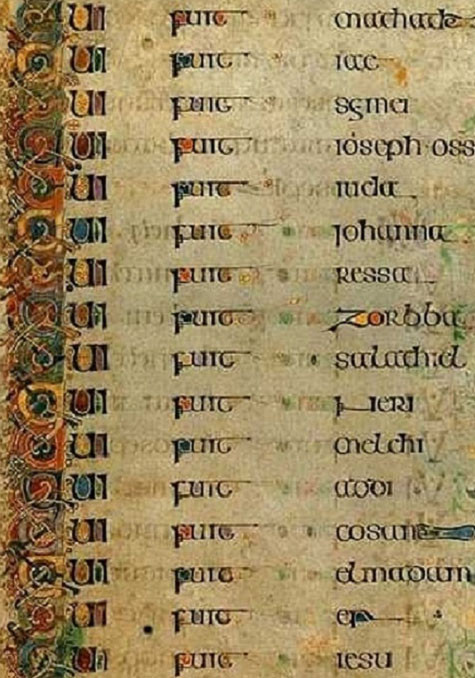 QUI fuit
QUI fuit iae
QUI fuit semei
QUI fuit ioseph oss
QUI fuit iuda
QUI fuit iohanna
QUI fuit ressa
QUI fuit zorbba
QUI fuit salathiel
QUI fuit neri
QUI fuit melchi
QUI fuit addi
QUI fuit cosam
QUI fuit elmadam
QUI fuit er
QUI fuit iesu